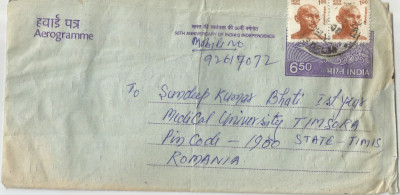 हवाई पत्र
Aerogramme
भारत की स्वतंत्रता की 50वीं वर्षगांठ
50TH ANNIVERSARY OF INDIA'S INDEPENDENCE
92617072
6.50
भारत INDIA
To Sundeep Kumar Bhati 1st year
Medical University TIMSORA
Pin Code - 1900 STATE - TIMIS
ROMANIA